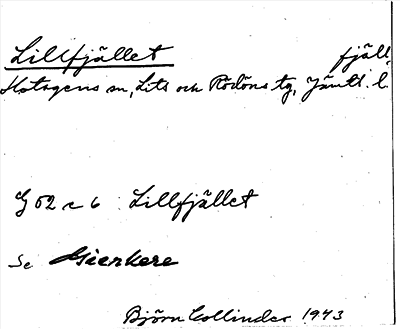 Lillfjället fjäll
Hotagens sn, Lits och Rödöns tg, Jämtl. l.
G 52 c 6 Lillfjället
Se Gierkere
Björn Collinder 1943